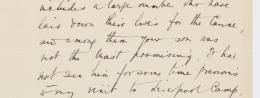 includes a large number who have
laid down their lives for the Cause,
and among them your son was
not the least promising. I has
not seen him for some time previous
to my visit to Liverpool Camp,